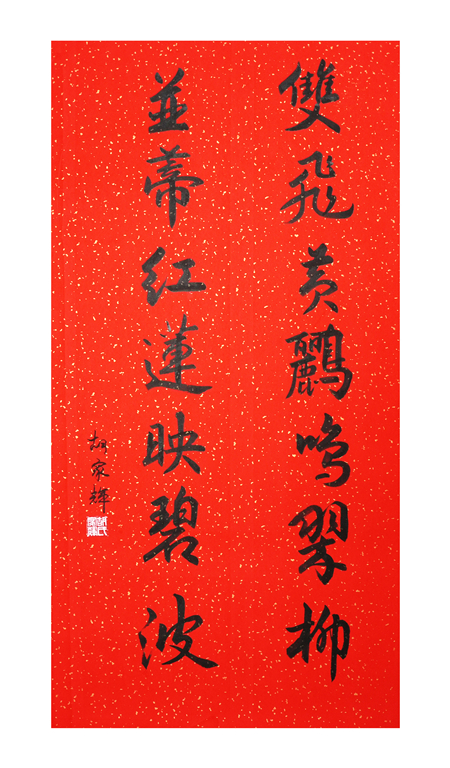 雙飛黃鸝鳴翠柳
並蒂紅蓮映碧波
胡家輝